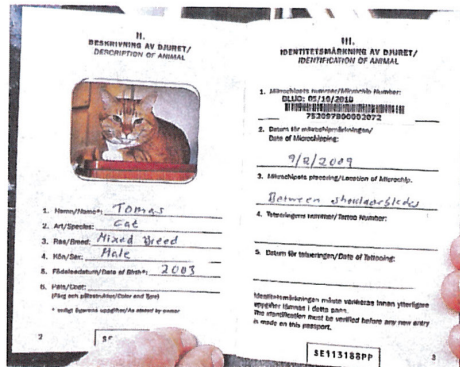 II.
BESKRIVNING AV DJURET/
DESCRIPTION OF ANIMAL
1. Namn/Name*: Tomas
2. Art/Species: Cat
3. Ras/Breed: Mixed Breed
4. Kön/Sex: Male
5. Födelsedatum/Date of Birth*: 2003
6. Päls/Coat:
(Färg och pälsstruktur/Color and Type)
* enligt ägarens uppgifter/As stated by owner
2
SE
III.
IDENTITETSMÄRKNING AV DJURET/
IDENTIFICATION OF ANIMAL
1. Microchipets nummer/Microchip Number:
DLUO: 05/10/2010
752097800002072
2. Datum för microchipmärkningen/
Date of Microchipping:
9/2/2009
3. Microchipets placering/Location of Microchip.
Between shoulderblades
4. Tatueringens nummer/Tattoo Number:
5. Datum för tatueringen/Date of Tattooing:
Identitetsmärkningen måste verifieras innan ytterligare
uppgifter lämnas i detta pass.
The identification must be verified before any new entry
is made on this passport.
SE113188PP
3